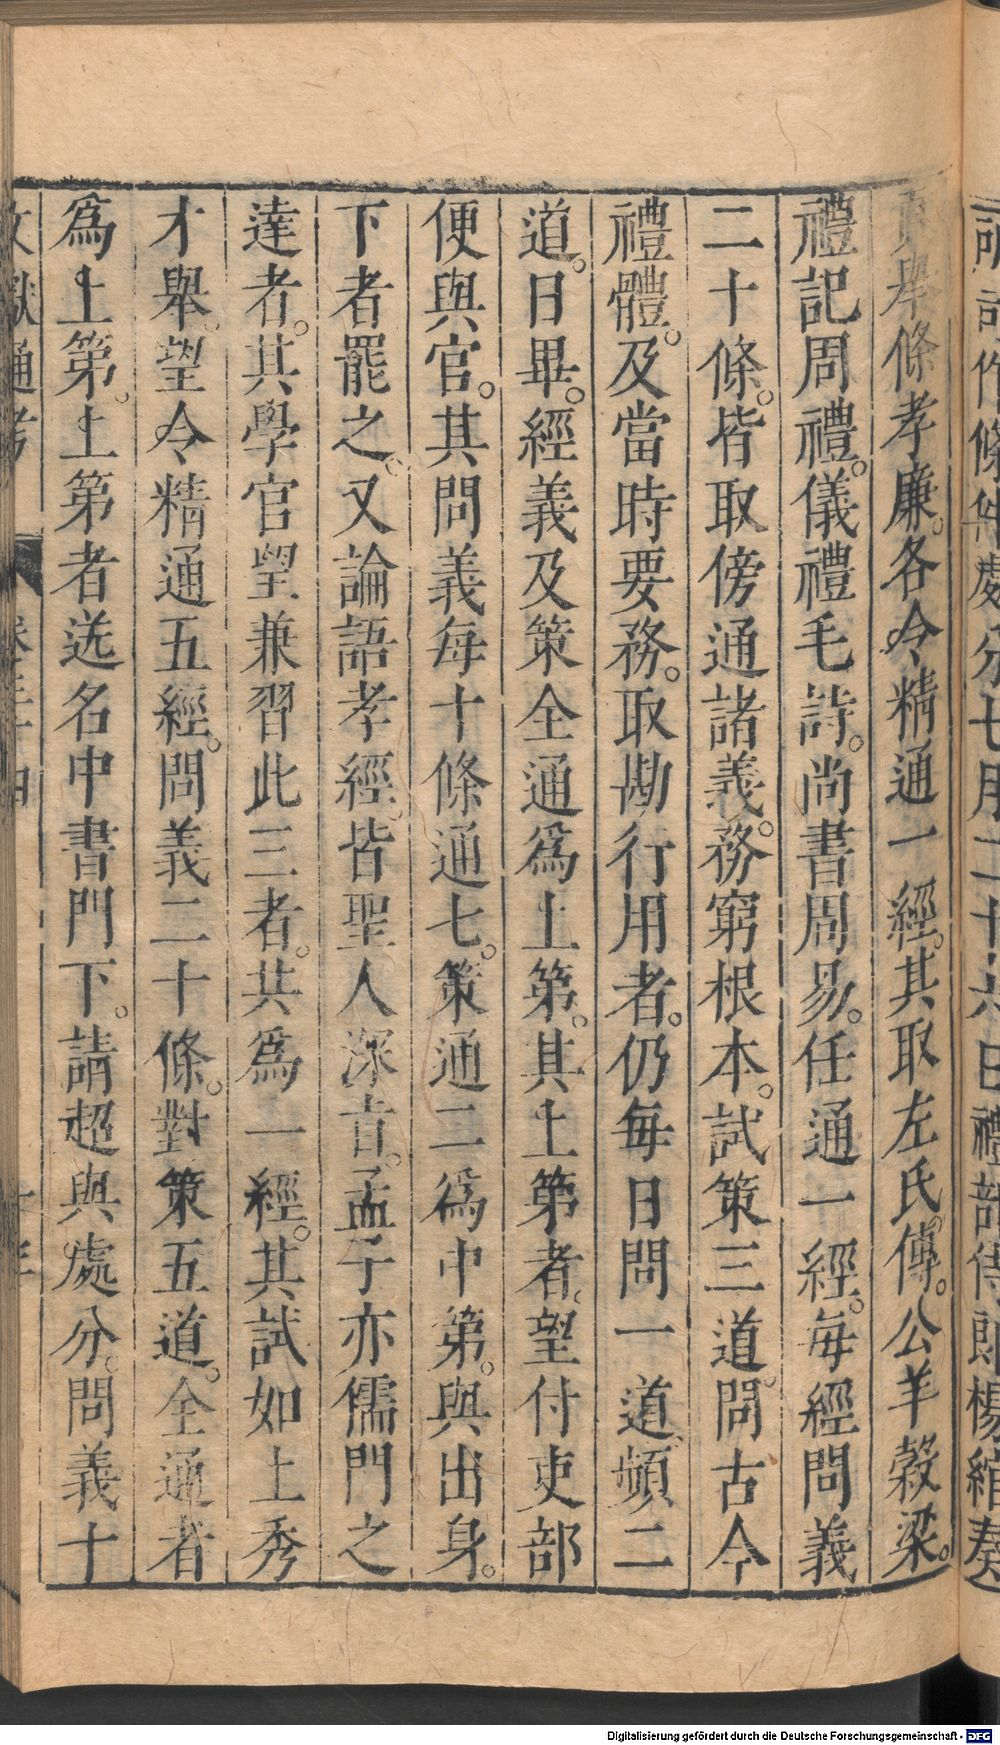 所司作條件處分七月二十六日禮部侍郎楊綰奏
貢舉條孝廉。各令精通一經。其取左氏傳。公羊穀梁。
禮記周禮。儀禮毛詩。尚書周易。任通一經。每經問義
二十條。皆取傍通諸義。務窮根本。試策三道。問古今
禮體。及當時要務。取勘行用者。仍每日問一道。頻二
道。日畢。經義及策全通爲上第。其上第者。望付吏部
便與官。其問義每十條通七。策通二爲中第。與出身。
下者罷之。又論語孝經。皆聖人深旨。孟子亦儒門之
達者。其學官望兼習此三者。共爲一經。其試如上秀
才舉。望令精通五經。問義二十條。對策五道。全通者
爲上第。上第者送名中書門下。請超與處分。問義十
文獻通考
卷三十四
Digitalisierung gefördert durch die Deutsche Forschungsgemeinschaft - DFG